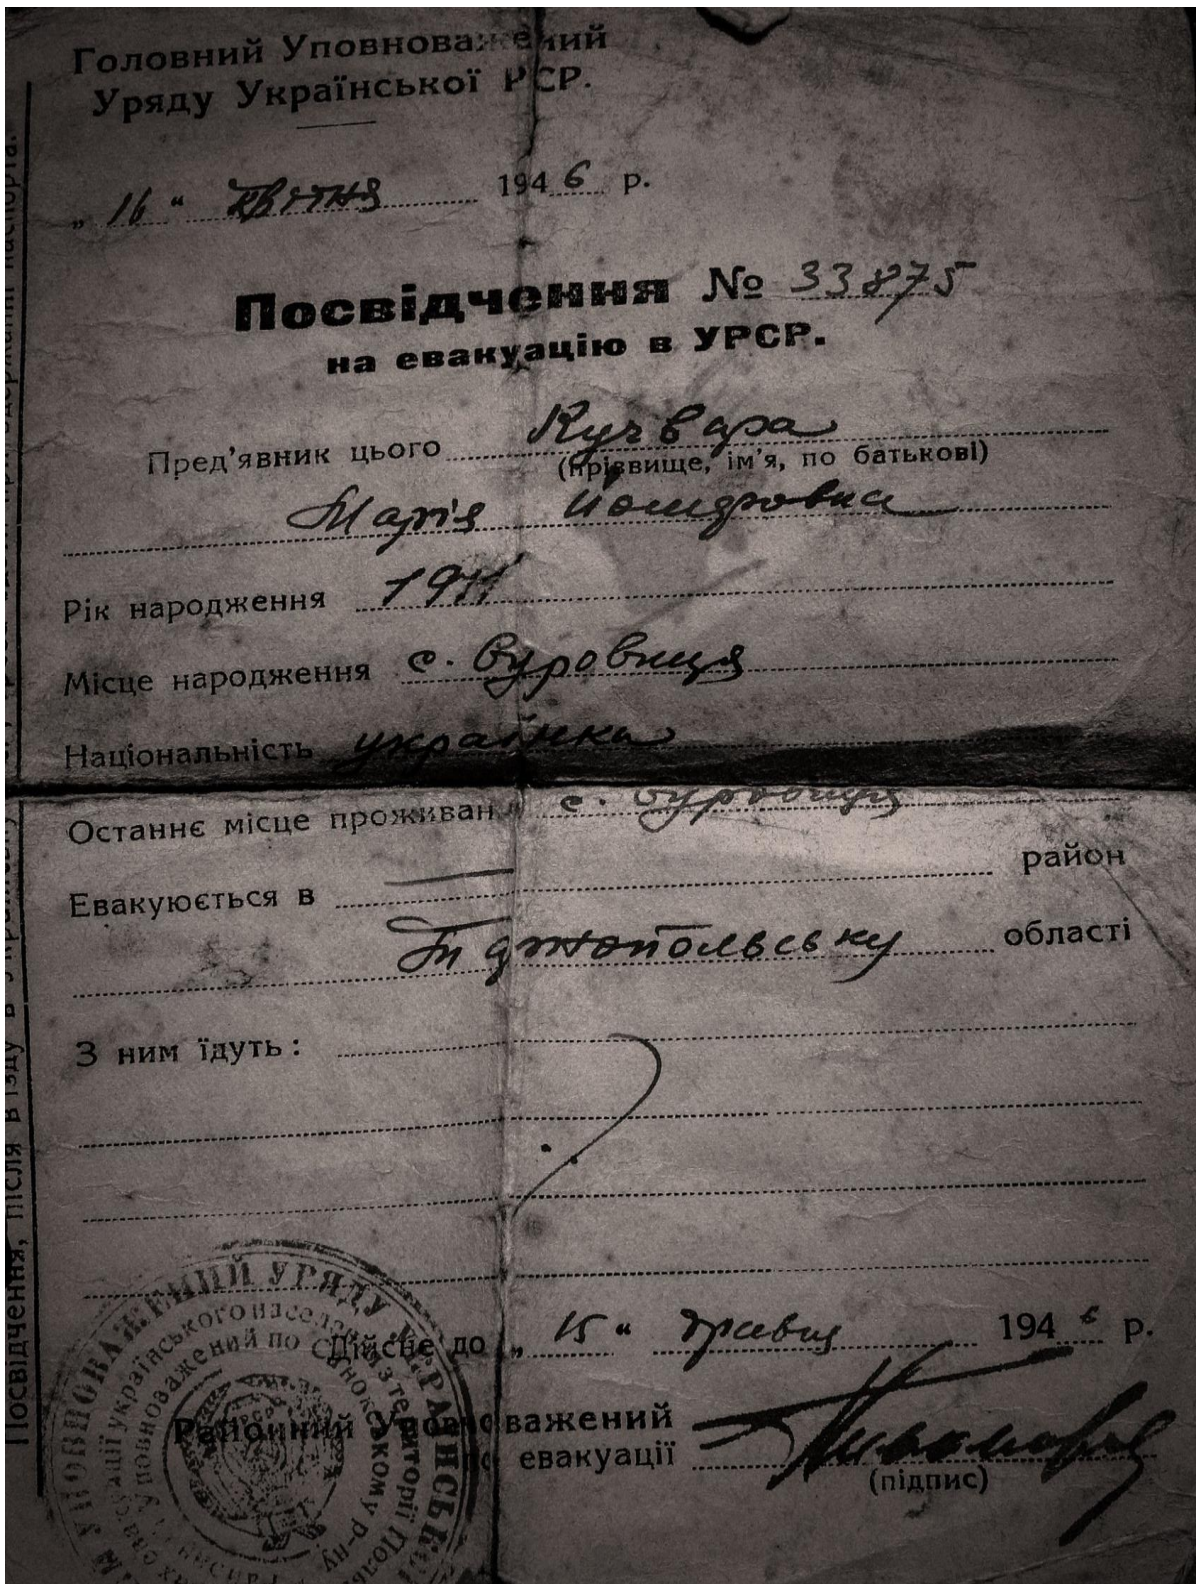 Головний Уповноважений
Уряду Української РСР.
„ 16 “ квітня 1946 р.
Посвідчення № 33875
на евакуацію в УРСР.
Пред'явник цього Кучвара
(прізвище, ім'я, по батькові)
Марія
Рік народження 1911
Місце народження с. Суровиця
Національність українка
Останнє місце проживан с. Суровиця
Евакуюється в — район
області
З ним їдуть:
Дійсне до „ 15 “ травня 1946 р.
Районний Уповноважений
по евакуації
(підпис)
УПОВНОВАЖЕНИЙ УРЯДУ УКРАЇНСЬКОЇ
евакуації українського населення з території Поль
Уповноважений по Сяноцькому р-ну
Посвідчення, після в'їзду в Україну